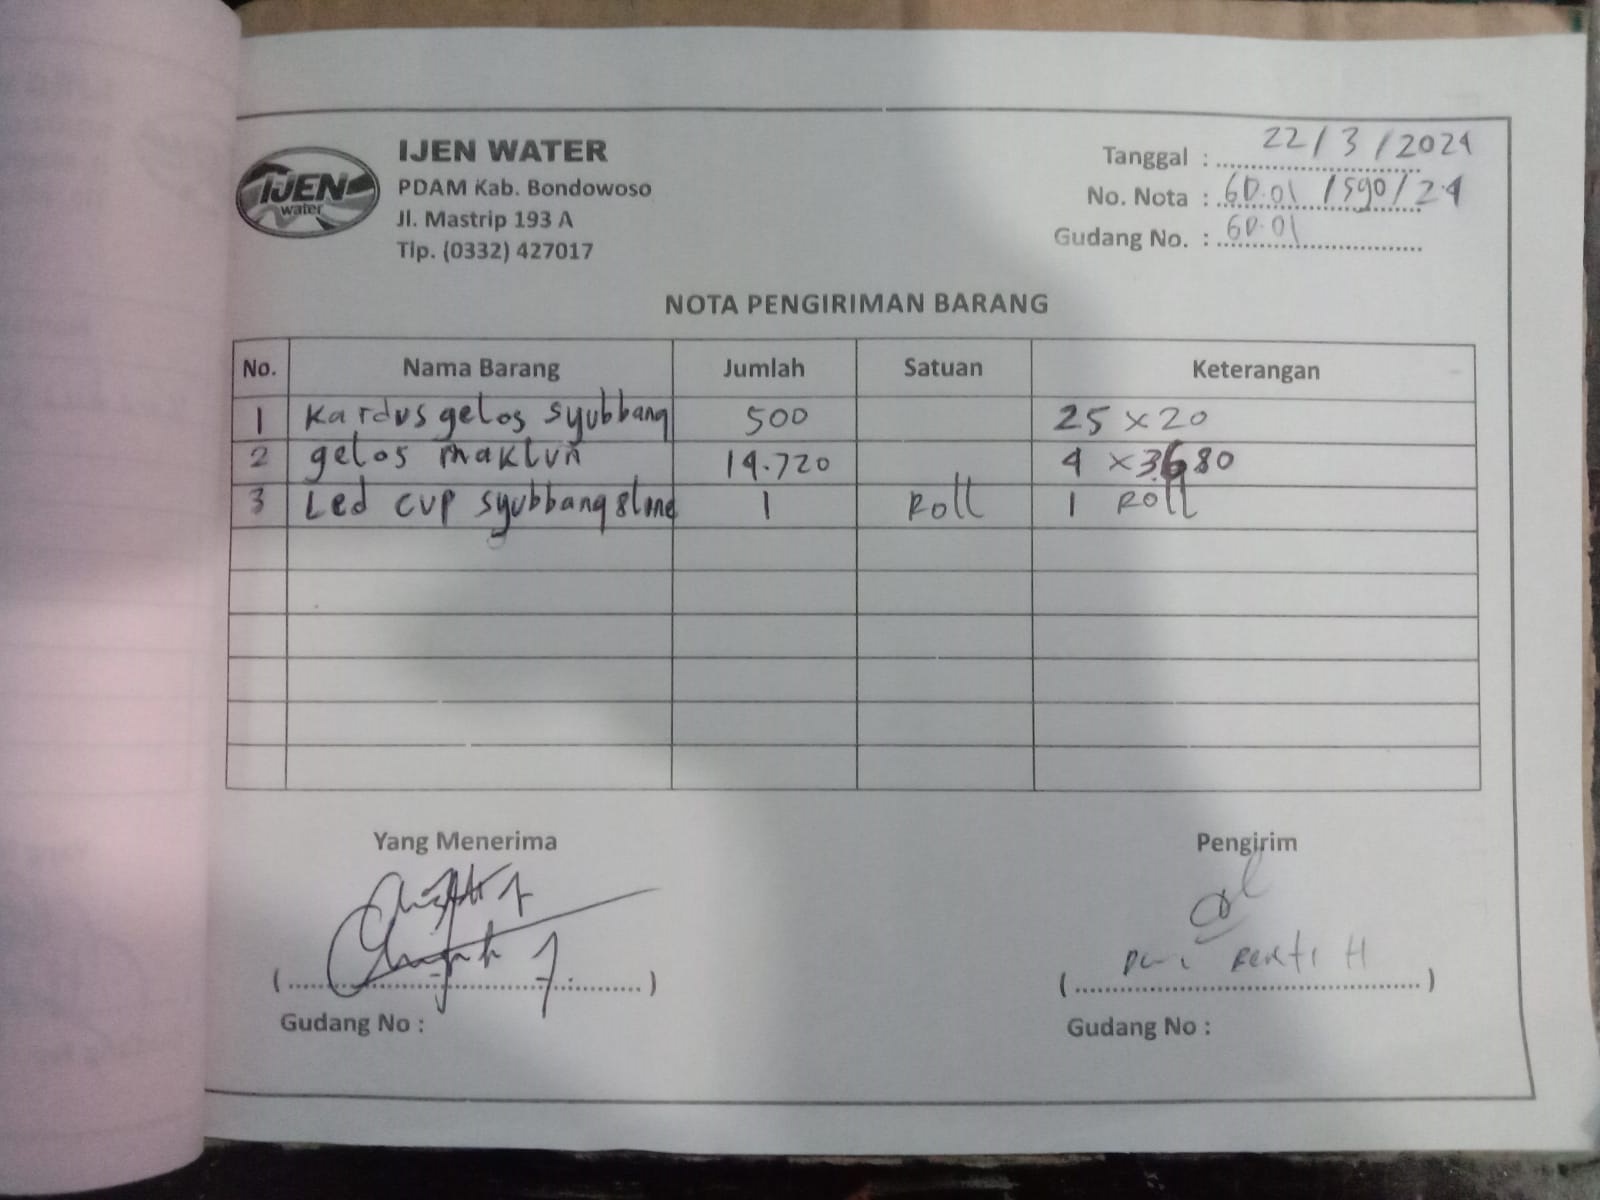 IJEN
water
IJEN WATER
PDAM Kab. Bondowoso
Jl. Mastrip 193 A
Tlp. (0332) 427017
Tanggal : 22/3/2024
No. Nota : GD.01 /590/24
Gudang No. : GD.01
NOTA PENGIRIMAN BARANG
No. Nama Barang Jumlah Satuan Keterangan
1 Kardus gelos syubbang 500 25 x 20
2 gelos maklun 14.720 4 x 3.680
3 Led cup syubbang 1 Roll 1 Roll
Yang Menerima Pengirim
Gudang No : Gudang No :